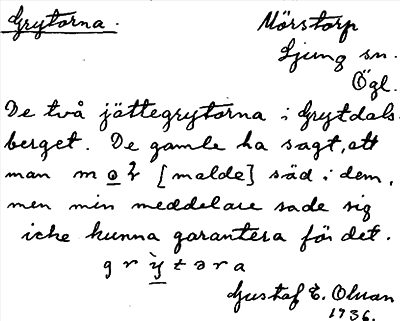 Grytorna.
Mörstorp
Ljung sn.
Ögl.
De två jättegrytorna i Grytdals-
berget. De gamle ha sagt, att
man [malde] säd i dem,
men min meddelare sade sig
icke kunna garantera för det.
g r ỳ t ə r a
Gustaf E. Olsson
1936.